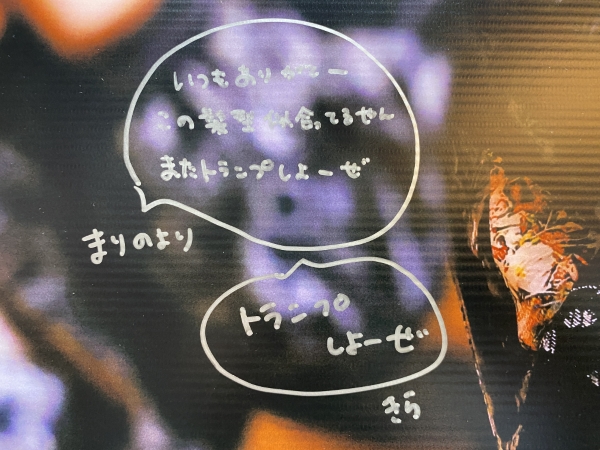 いつもありがとー
この髪型似合ってるやん
またトランプしよーぜ
まりのより
トランプ
しよーぜ
きら